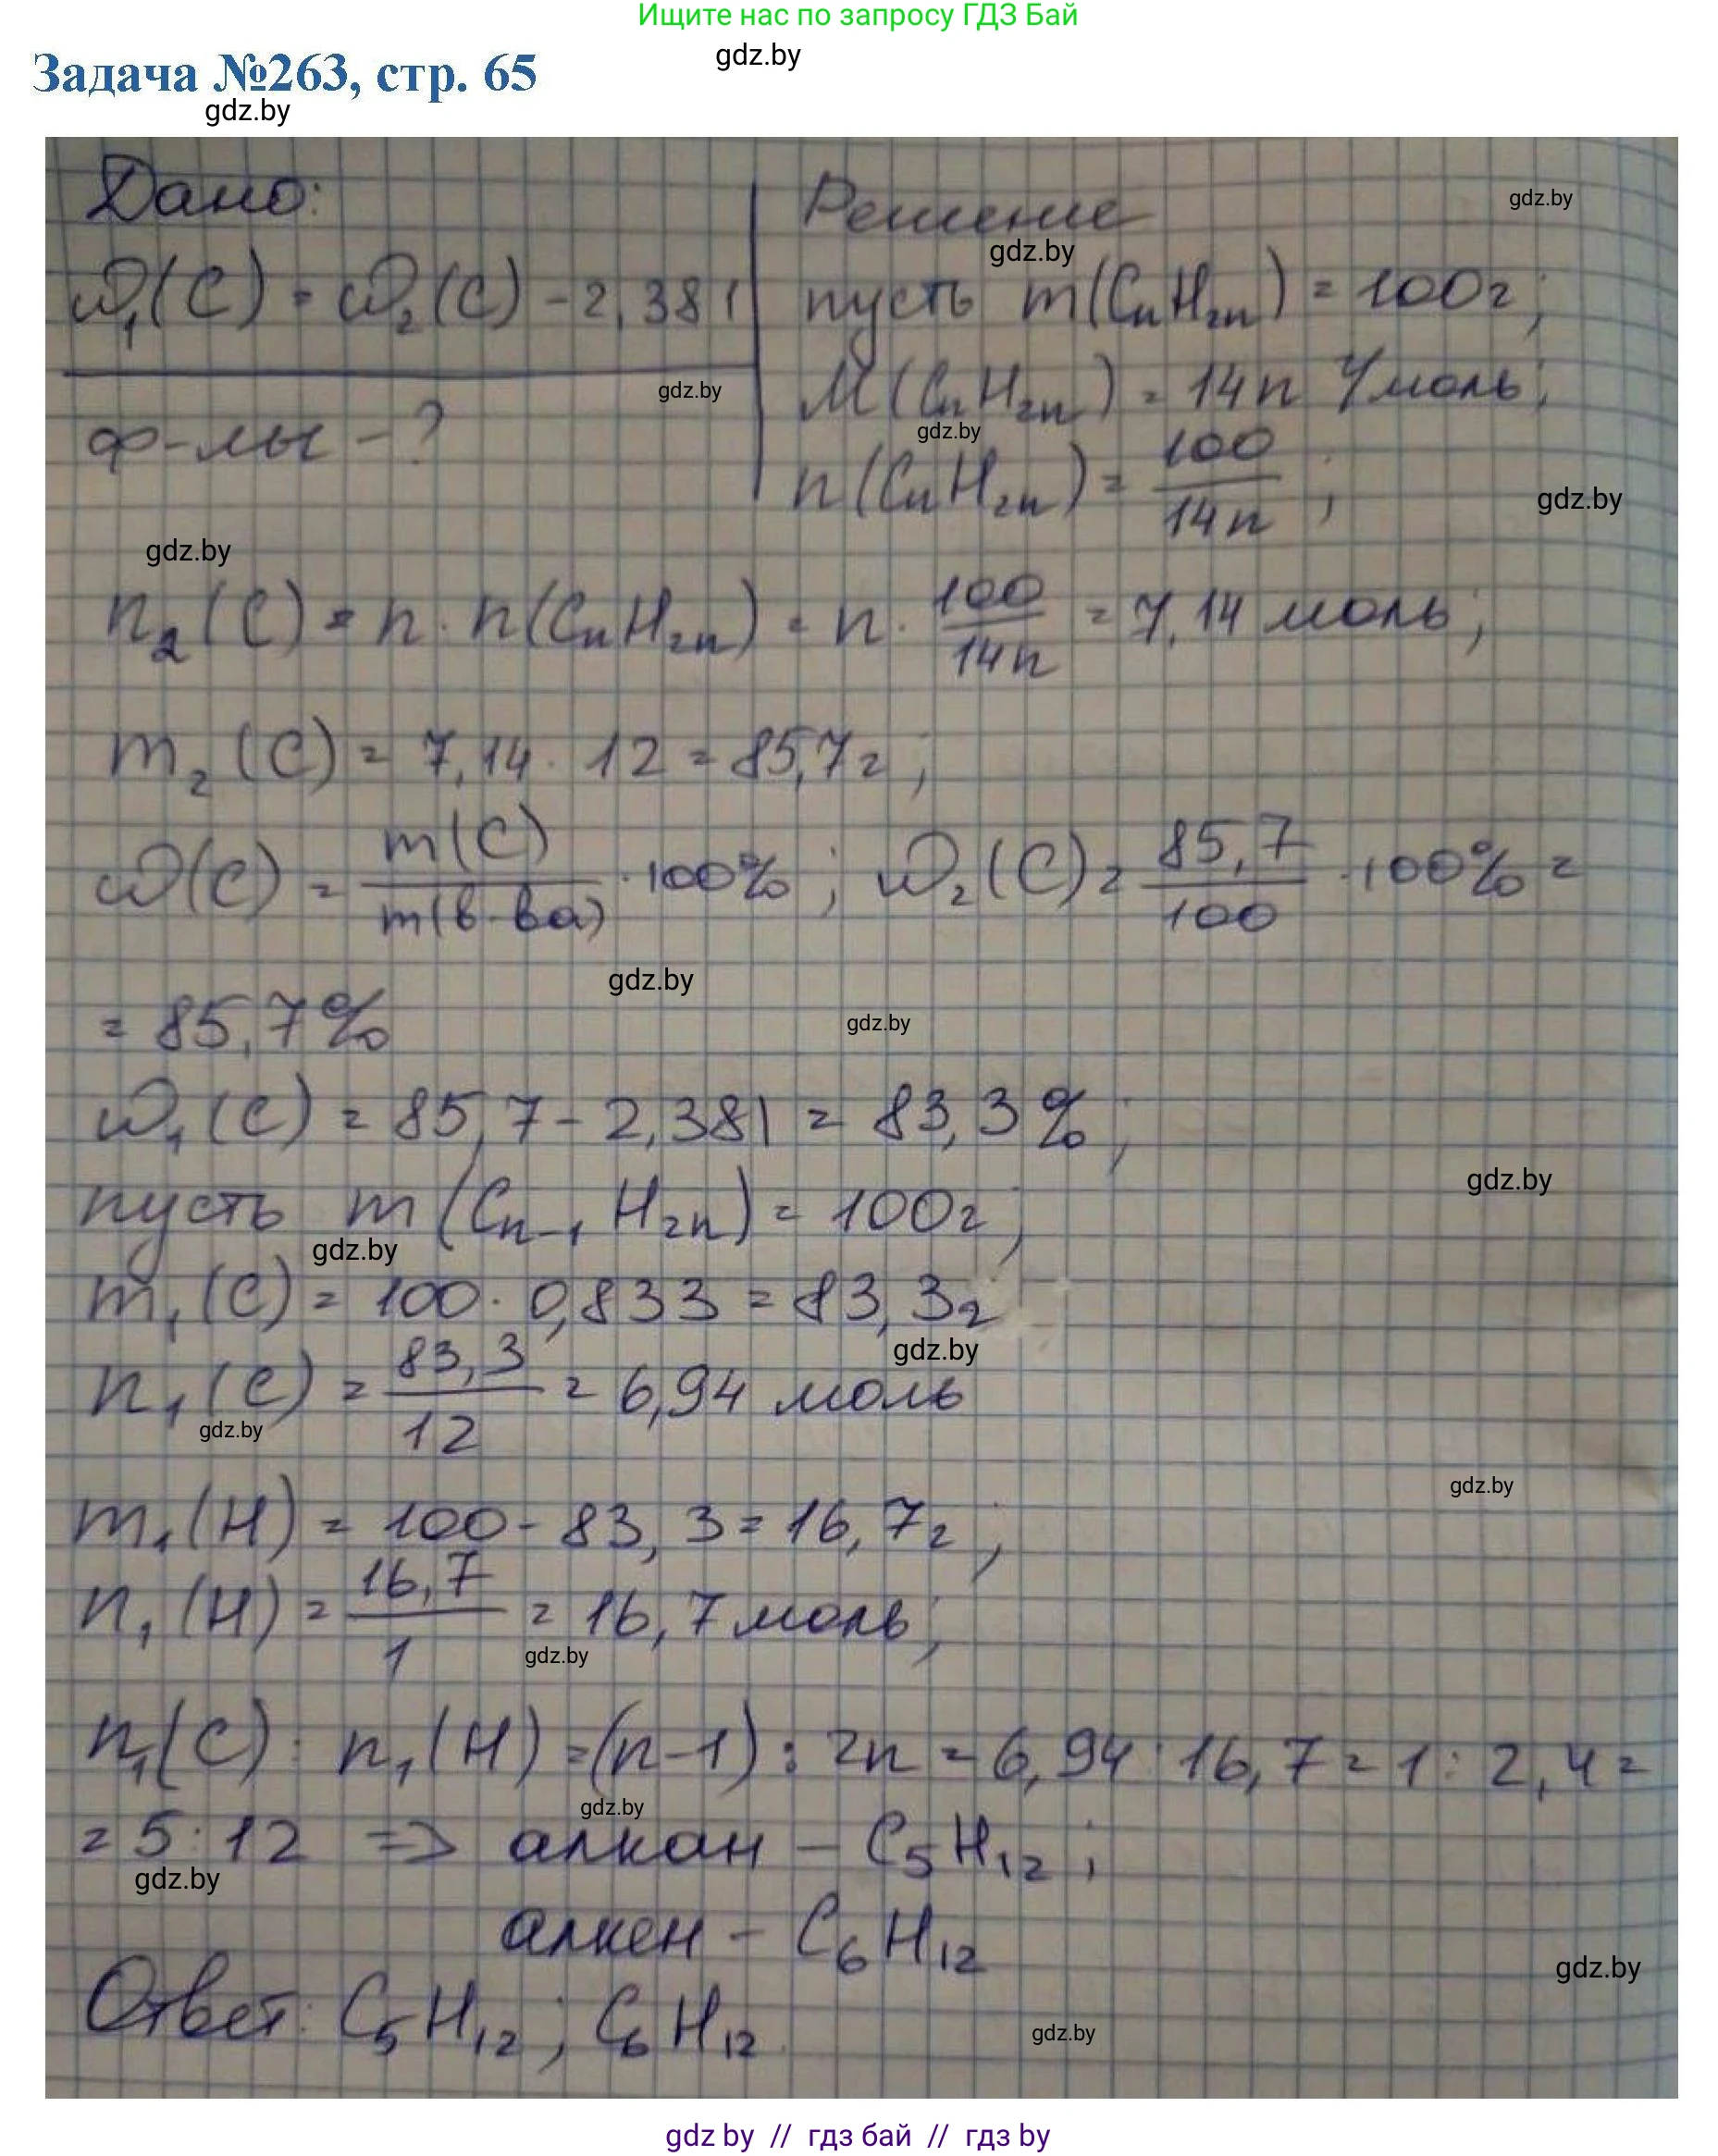 Ищите нас по запросу ГДЗ Бай
gdz.by
Задача №263, стр. 65
gdz.by
Дано:
Решение
gdz.by
gdz.by
ω₁(C) = ω₂(C) - 2,381
пусть m(CₙH₂ₙ) = 100г;
gdz.by
M(CₙH₂ₙ) = 14n г/моль;
gdz.by
ф-лы - ?
n(CₙH₂ₙ) = 100/14n ;
gdz.by
gdz.by
n₂(C) = n · n(CₙH₂ₙ) = n · 100/14n = 7,14 моль;
m₂(C) = 7,14 · 12 = 85,7г;
ω(C) = m(C)/m(в-ва) · 100% ; ω₂(C) = 85,7/100 · 100% =
gdz.by
= 85,7%
gdz.by
ω₁(C) = 85,7 - 2,381 = 83,3%;
gdz.by
пусть m(Cₙ₋₁H₂ₙ) = 100г;
gdz.by
m₁(C) = 100 · 0,833 = 83,3г
gdz.by
n₁(C) = 83,3/12 = 6,94 моль
gdz.by
gdz.by
m₁(H) = 100 - 83,3 = 16,7г;
n₁(H) = 16,7/1 = 16,7 моль;
gdz.by
n₁(C) : n₁(H) = (n-1) : 2n = 6,94 : 16,7 = 1 : 2,4 =
gdz.by
= 5 : 12 => алкан - C₅H₁₂;
gdz.by
алкен - C₆H₁₂
gdz.by
Ответ: C₅H₁₂; C₆H₁₂.
gdz.by
gdz.by // гдз бай // гдз by